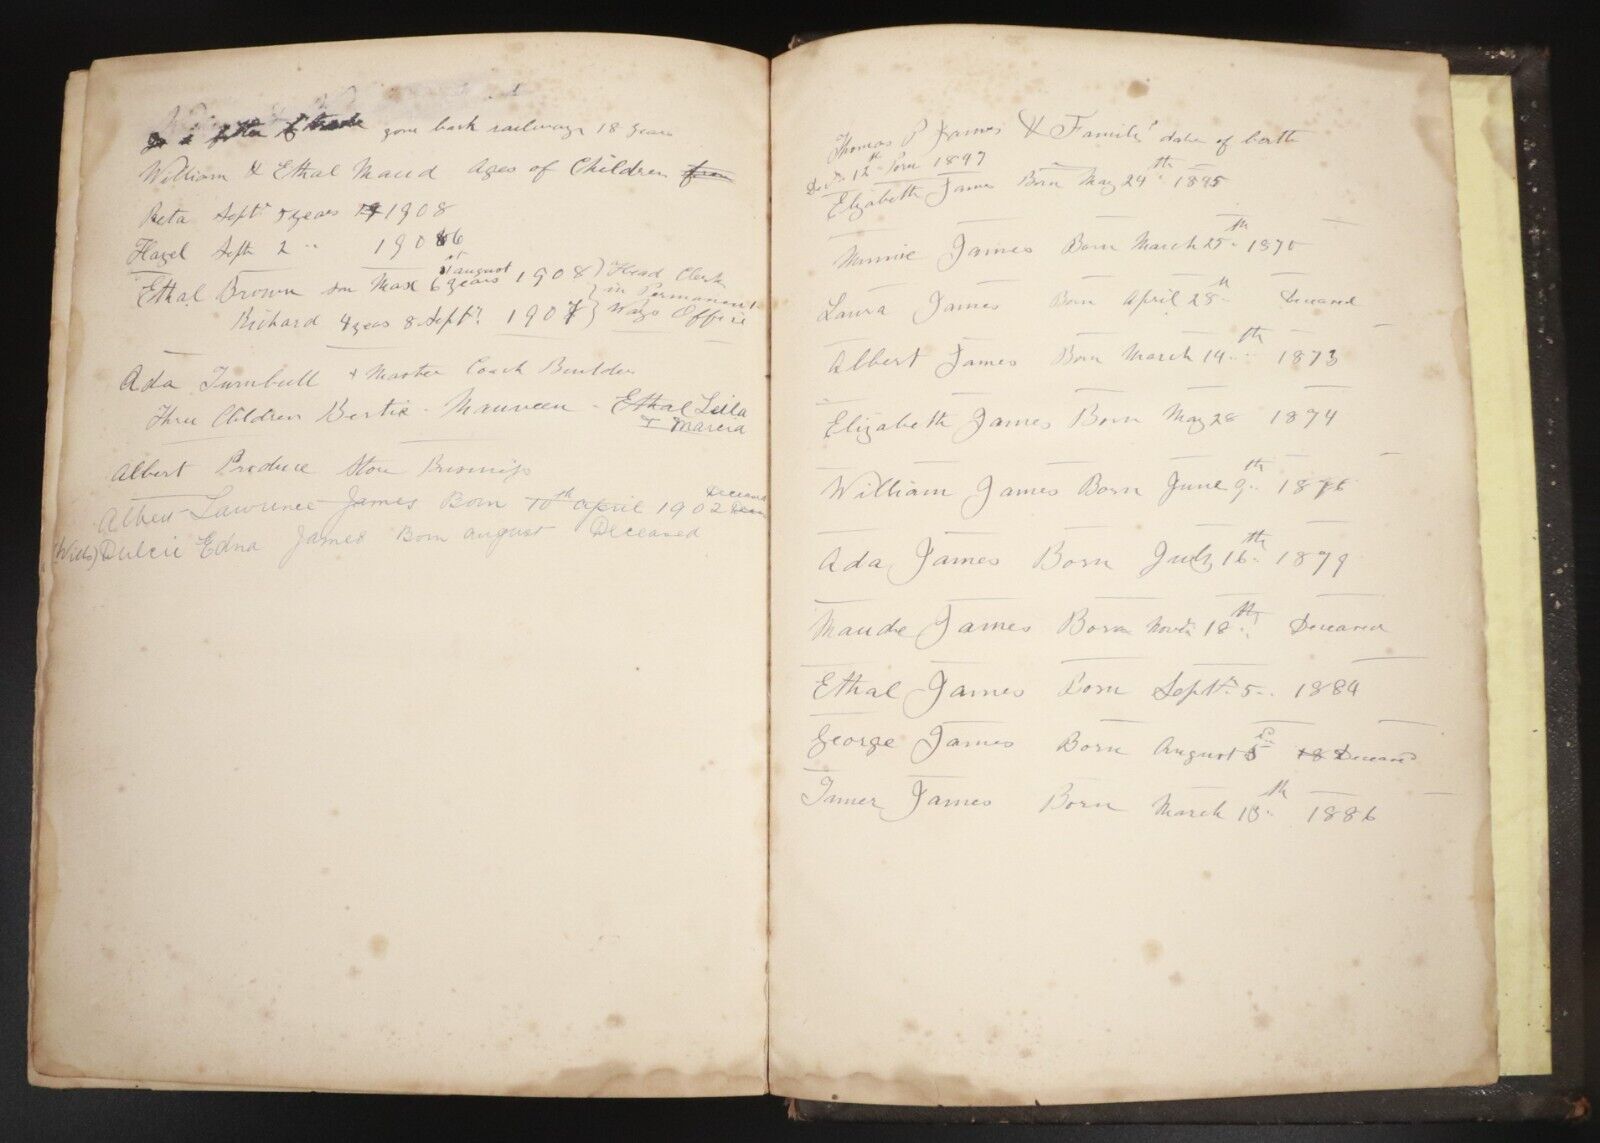 gone back railways 18 years
William & Ethal Maud Ages of Children from
Reta Septr 5 years 1908
Hazel Septr 2 " 1906
1st august
Ethal Brown son Max 6 years 1908 } Head Clerk
in Permanent
Richard 4 years 8 Septr 1907 } Ways Office
Ada Turnbull + Master Coach Builder
Three Children Bertie - Mauveen - Ethal Leila
+ Marcia
Albert Produce Store Business
Deceased
Albert Lawrence James Born 10th april 1902
(Wills) Dulcie Edna James Born august Deceased
Thomas P James & Family's dates of berth
Born 1897
Elizabeth James Born May 24th 1895
Minnie James Born March 25th 1870
Laura James Born April 28th Deceased
Albert James Born March 19th 1873
Elizabeth James Born May 28 1874
William James Born June 9th 1876
Ada James Born July 16th 1879
Maude James Born Novr 18th Deceased
Ethal James Born Septr 5 1884
George James Born August 5 18 Deceased
James Born March 13th 1886